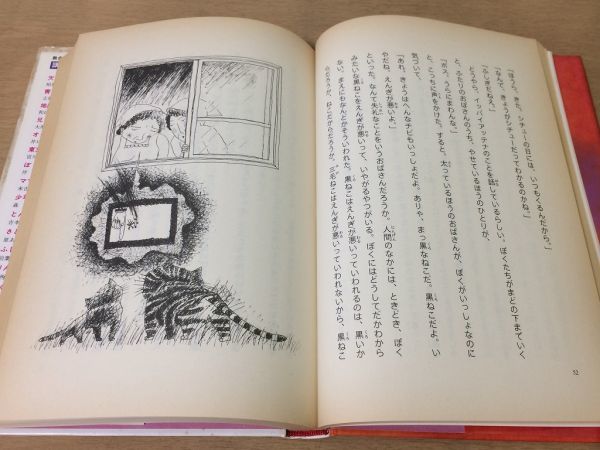 「ほうら、きた。シチューの日には、いつもくるんだから。」
「ふしぎだねえ。」
「なんで、きょうがシチューだってわかるのかね。」
どうやら、イッパイアッテナのことを話しているらしい。ぼくたちがまどの下までいく
と、ふたりのおばさんのうち、やせているほうのひとりが、
「ボス、うらにまわんな。」
と、こっちに声をかけた。すると、太っているほうのおばさんが、ぼくがいっしょなのに
気づいて、
「あれ、きょうはへんなチビもいっしょだよ。ありゃ、まっ黒なねこだ。黒ねこだよ。い
やだね、えんぎが悪いよ。」
といった。なんて失礼なことをいうおばさんだろうか。人間のなかには、ときどき、ぼく
みたいな黒ねこをえんぎが悪いって、いやがるやつがいる。ぼくにはどうしてだかわから
ない。まえにもなんどかそういわれた。黒ねこはえんぎが悪いっていわれるのは、黒いか
らだろうか、ねこだからだろうか。三毛ねこはえんぎが悪いっていわれないから、黒ねこ
52